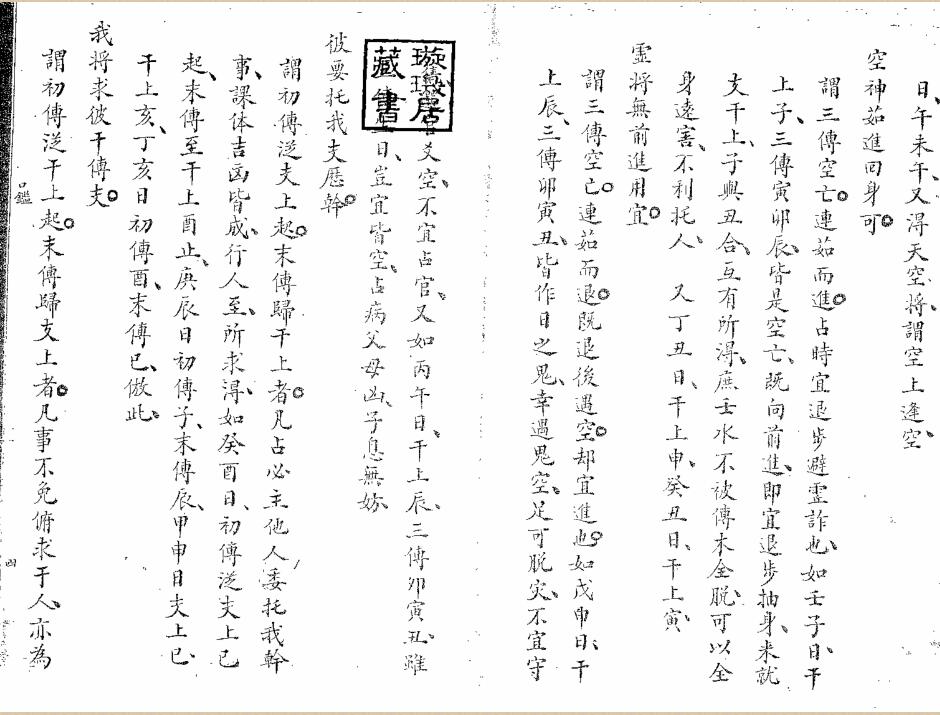 日、午未午、又得天空將、謂空上逢空、
空神茹進回身可。
謂三傳空亡。連茹而進。占時宜退步避灵詐也、如壬子日、干
上子、三傳寅卯辰、皆是空亡、既向前進、即宜退步抽身、来就
支干上、子與丑合、互有所得、庶壬水不被傳木全脱、可以全
身遠害、不利托人、 又丁丑日、干上申、癸丑日、干上寅、
灵將無前進用宜。
謂三傳空亡。連茹而退。既退後遇空。却宜進也。如戊申日、干
上辰、三傳卯寅丑、皆作日之鬼、幸遇鬼空、足可脱灾、不宜守
爻空、不宜占官、又如丙午日、干上辰、三傳卯寅丑、雖
日、豈宜皆空、占病父母凶、子息無妨
璇璣居藏書
彼要托我支歷幹。
謂初傳從支上起。末傳歸干上者。凡占必主他人委托我幹
事、課体吉凶皆成、行人至、所求得、如癸酉日、初傳從支上巳
起、末傳至干上酉止、庚辰日初傳子、末傳辰、甲申日支上巳
干上亥、丁亥日初傳酉、末傳巳、倣此、
我將求彼干傳支。
謂初傳從干上起。末傳歸支上者。凡事不免俯求于人、亦為
鑑